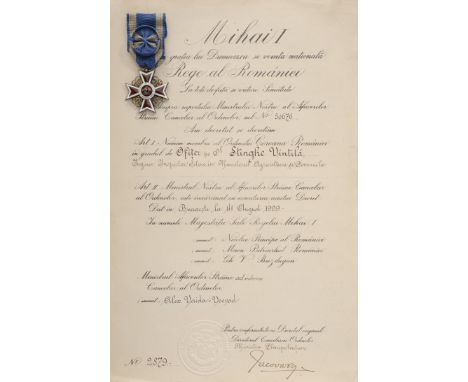 Mihai I
prin gratia lui Dumnezeu si vointa nationala
Rege al României
La toti de fată si viitori Sănătate
Asupra raportului Ministrului Nostru al Afacerilor
Străine Cancelar al Ordinelor, sub No 50676
Am decretat si decretăm
Art. I. Numim membru al Ordinului Coroana României
in gradul de Ofiter pe Dl Stinghe Vintilă
Inginer Inspector Silvic in Ministerul Agriculturei si Domeniilor
Art. II. Ministrul Nostru al Afacerilor Străine Cancelar
al Ordinelor, este însărcinat cu executarea acestui Decret
Dat in Bucuresti la
In numele Majestătii Sale Regelui Mihai I
Nicolae Principe al României
Miron Patriarhul României
Gh. V. Buzdugan
Ministrul Afacerilor Străine ad interim
Cancelar al Ordinelor
Alex. Vaida-Voevod
Pentru conformitate cu Decretul original
Directorul Cancelariei Ordinelor
Ministru Plenipotentiar
No 2879